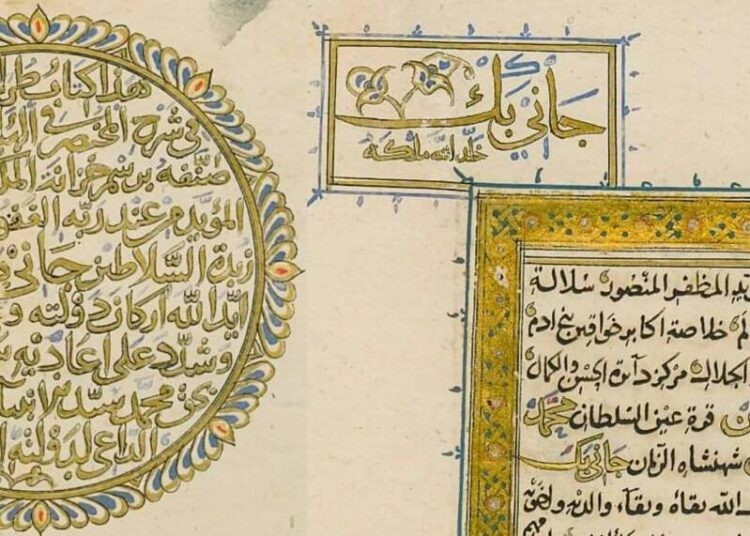 هذا كتاب
في شرح المختصر في
صنفه برسم خزانة
المؤيد من عند ربه
زبدة السلاطين جاني
ايد الله اركان دولته
وشدد على اعاديه
بحق محمد سيد
الداعي لدولته
جاني بك
خلد الله ملكه
المظفر المنصور سلالة
خلاصة اكابر خواقين بني ادم
الجلال مركز دائرة الحسن والكمال
قرة عين السلطان محمد
شهنشاه الزمان جاني بك
الله بقاه وبقاء والديه